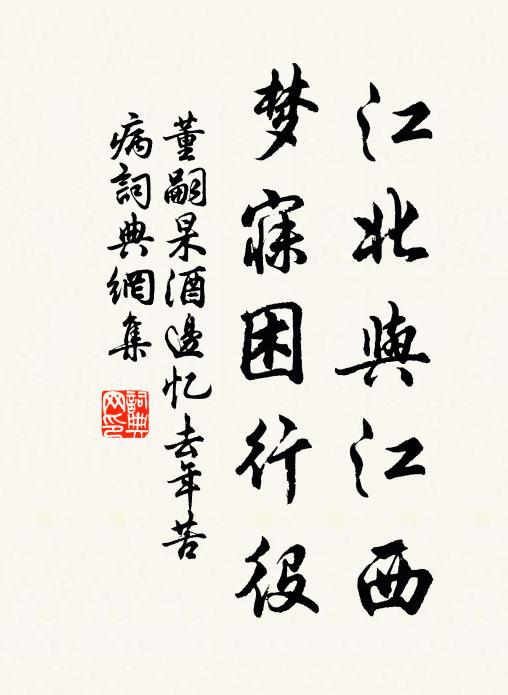 江北與江西
梦寐困行役
董嗣杲酒邊忆去年苦
病詞典網集
詞典
网印